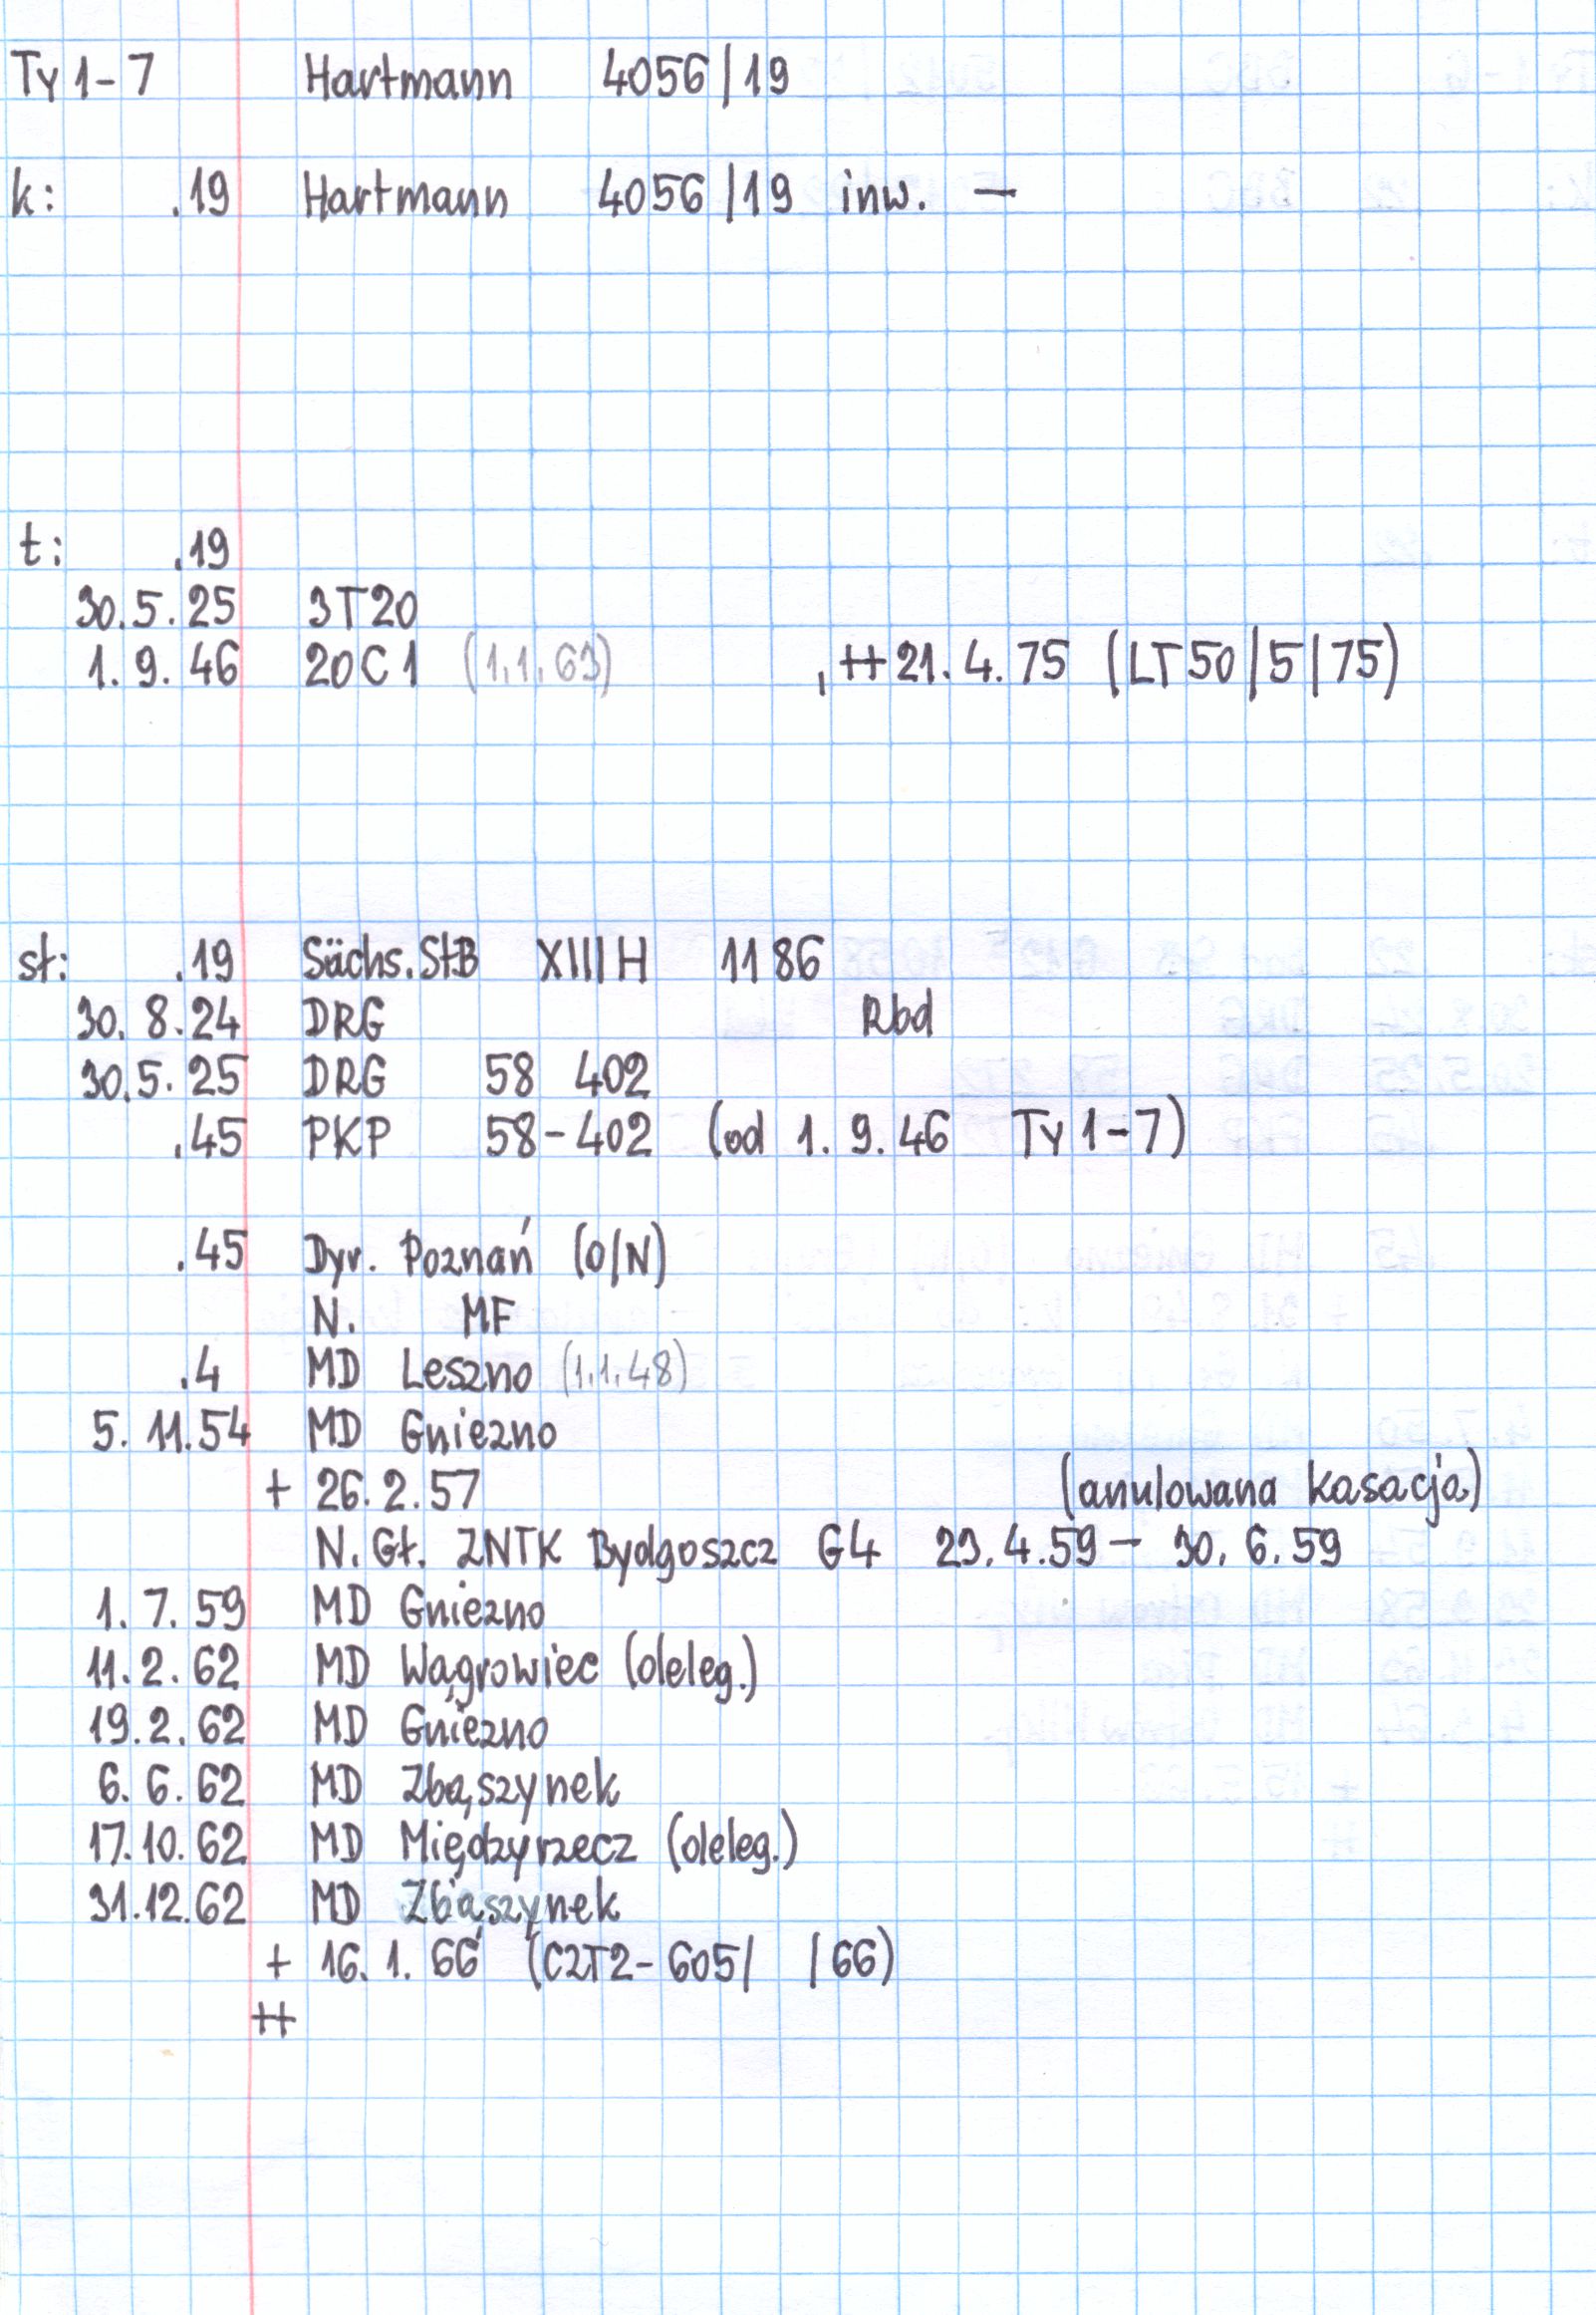 Ty 1-7 Hartmann 4056/19
k: .19 Hartmann 4056/19 inw. —
t: .19
30.5.25 3T20
1.9.46 20C1 (1.1.63) , ++ 21.4.75 (LT50/5/75)
st: .19 Sächs.StB XIII H 1186
30.8.24 DRG Rbd
30.5.25 DRG 58 402
.45 PKP 58-402 (od 1.9.46 Ty 1-7)
.45 Dyr. Poznań (O/N)
N. MF
.4 MD Leszno (1.1.48)
5.11.54 MD Gniezno
+ 26.2.57 (anulowana kasacja)
N.Gł. ZNTK Bydgoszcz G4 23.4.59 — 30.6.59
1.7.59 MD Gniezno
11.2.62 MD Wągrowiec (deleg.)
19.2.62 MD Gniezno
6.6.62 MD Zbąszynek
17.10.62 MD Międzyrzecz (deleg.)
31.12.62 MD Zbąszynek
+ 16.1.66 (C2T2-605/ /66)
++